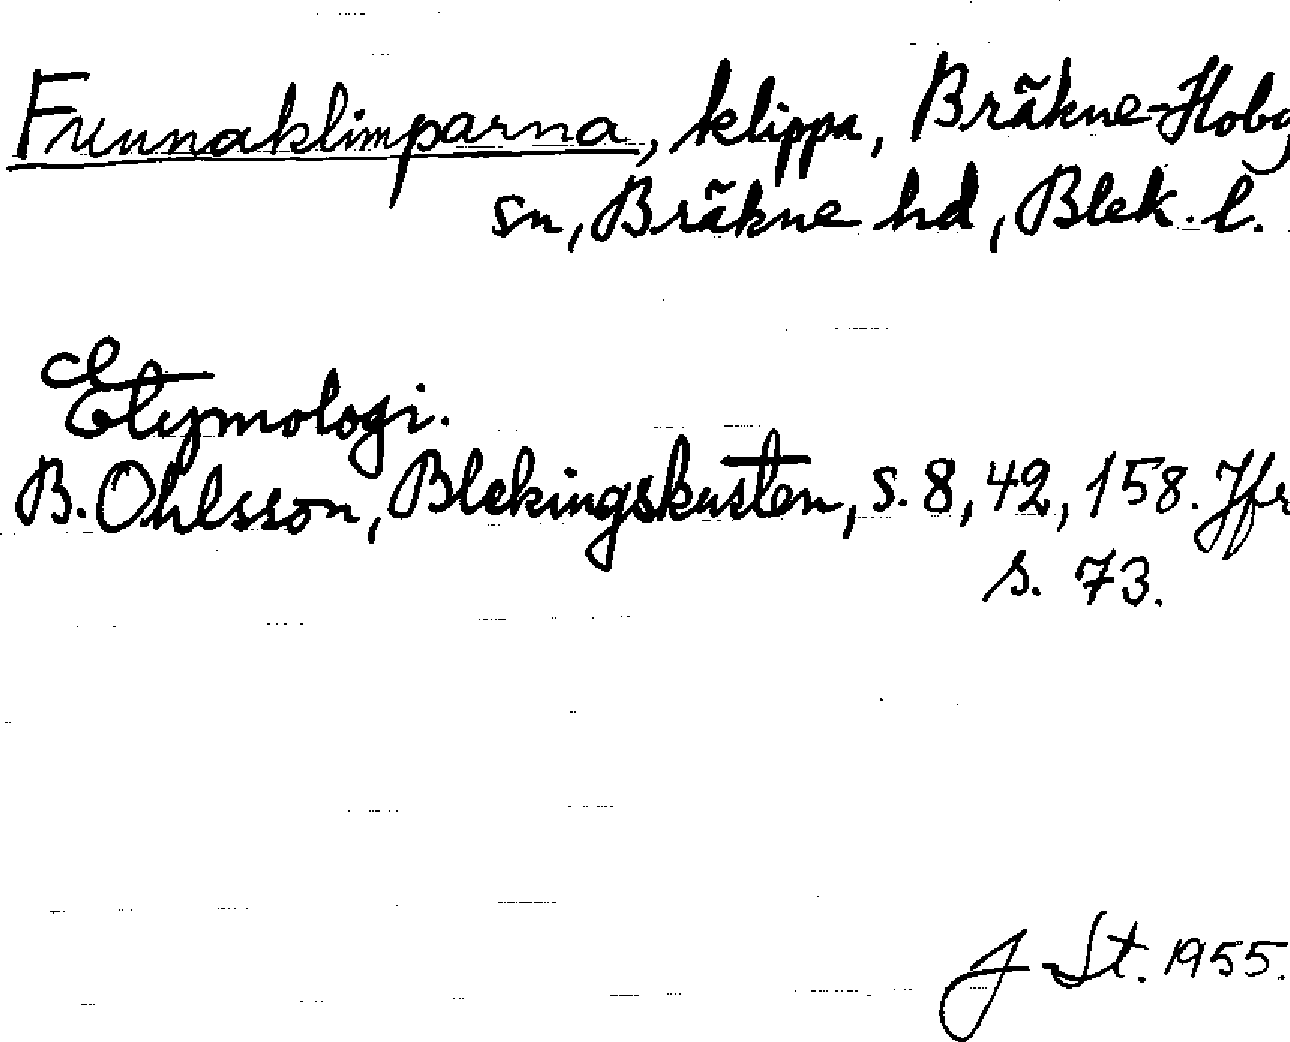 Frunnaklimparna, klippa, Bräkne-Hoby
sn, Bräkne hd, Blek. l.
Etymologi.
B. Ohlsson, Blekingskusten, s. 8, 42, 158. Jfr
s. 73.
J St. 1955.